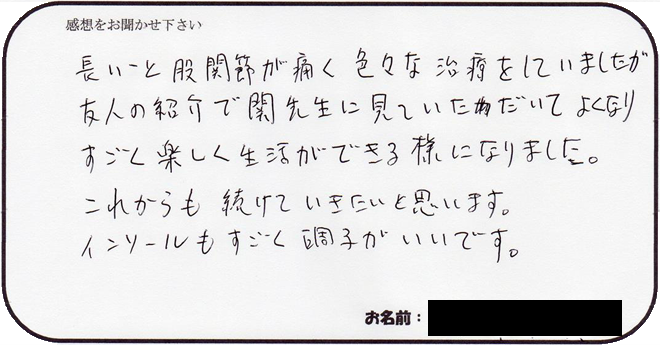 感想をお聞かせ下さい
長いこと股関節が痛く色々な治療をしていましたが
友人の紹介で関先生に見ていただいてよくなり
すごく楽しく生活ができる様になりました。
これからも続けていきたいと思います。
インソールもすごく調子がいいです。
お名前: